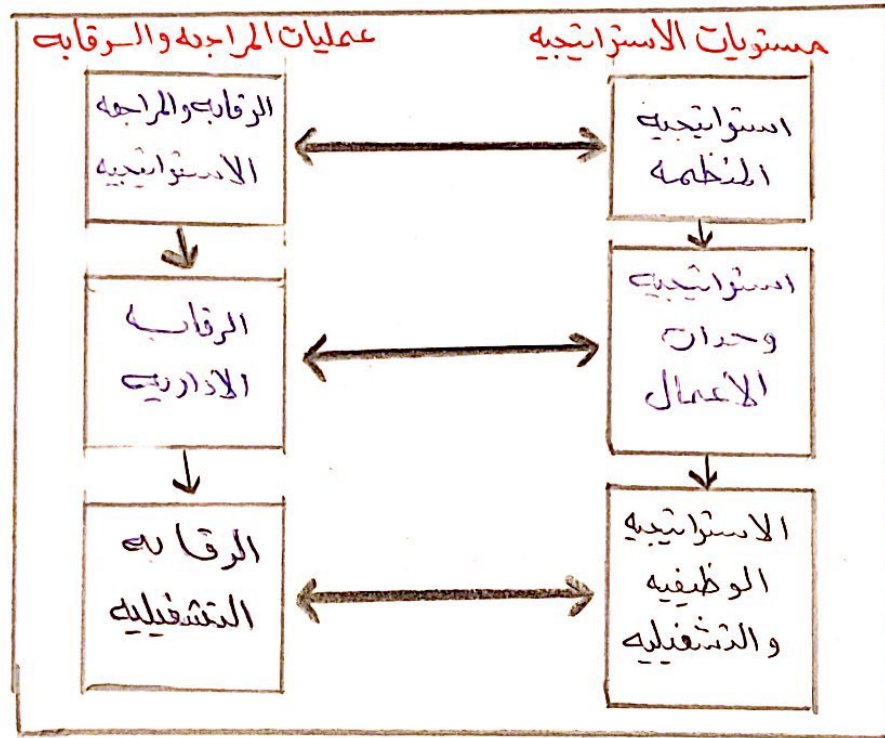 مستويات الاستراتيجيه
عمليات المراجعه والرقابه
استراتيجيه
المنظمه
الرقابه والمراجعه
الاستراتيجيه
استراتيجيه
وحدات
الأعمال
الرقابه
الاداريه
الاستراتيجيه
الوظيفيه
والتشغيليه
الرقابه
التشغيليه